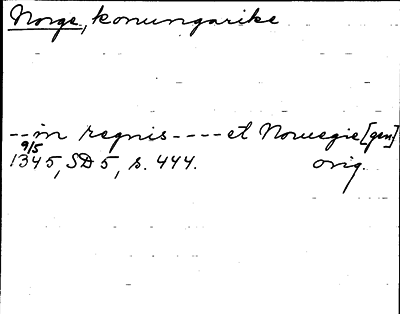 Norge, konungarike
-- in regnis ---- et Norwegie [gen]
9/5
1345, SD 5, s. 444. orig.